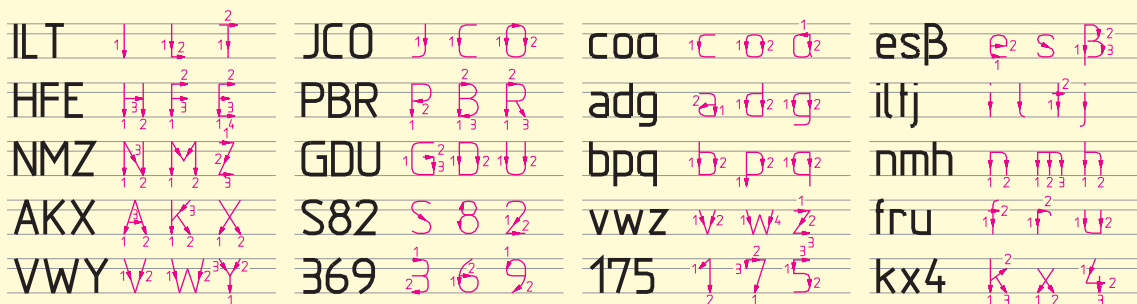 ILT I L T
HFE H F E
NMZ N M Z
AKX A K X
VWY V W Y
JCO J C O
PBR P B R
GDU G D U
S82 S 8 2
369 3 6 9
coa c o a
adg a d g
bpq b p q
vwz v w z
175 1 7 5
esβ e s β
iltj i l t j
nmh n m h
fru f r u
kx4 k x 4